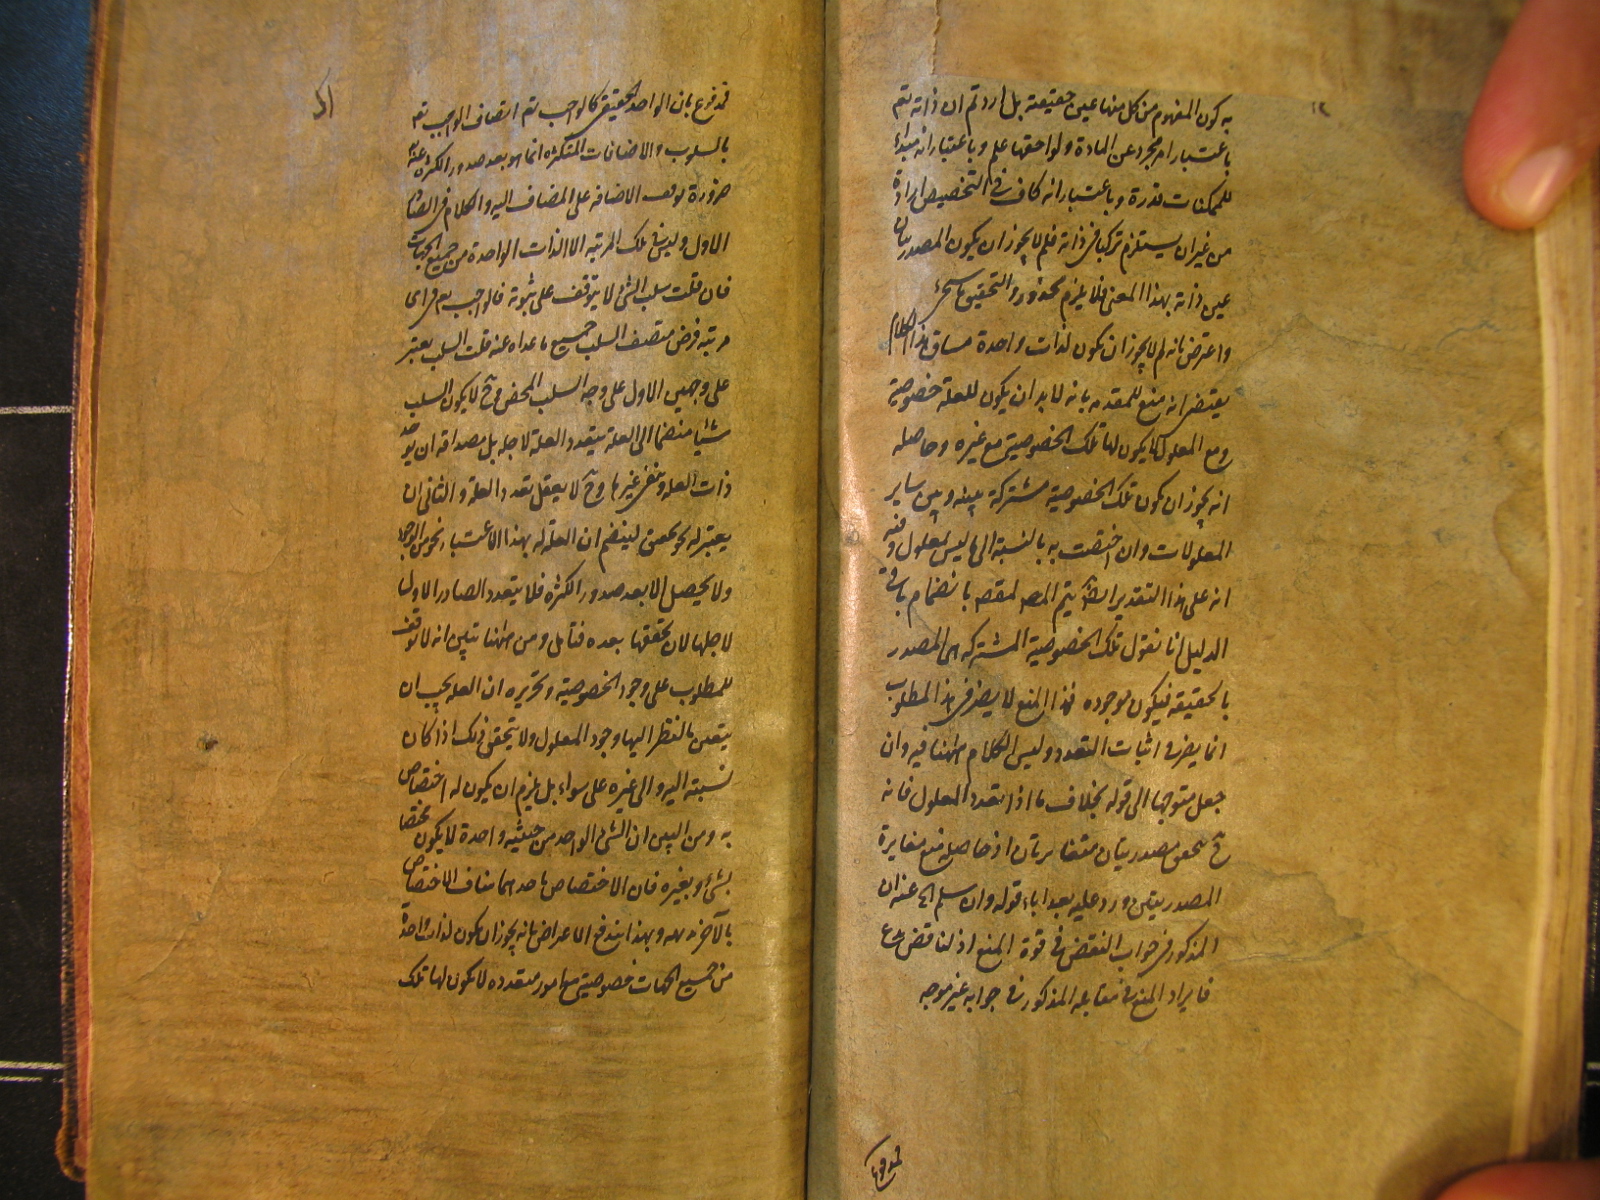 ١٢
به كون المفهوم من كل منها عين حقيقته بل اردتم ان ذاته تعم
باعتبار امر مجرد عن المادة ولواحقها علم وباعتبار انه مبداء
للممكنات قدرة وباعتبار انه كاف في التخصيص ارادة
من غير ان يستلزم تركبا في ذاته فلم لا يجوز ان يكون المصدريتان
عين ذاته بهذا المعنى فلا يلزم محذور والتحقيق ما سيجئ
واعترض بانه لم لا يجوز ان يكون لذات واحدة مساق هذا الكلام
يقتضى انه منع للمقدمه بانه لا بد ان يكون للعلة خصوصية
مع المعلول لا يكون لها تلك الخصوصية مع غيره وحاصله
انه يجوز ان يكون تلك الخصوصية مشتركة بينه وبين ساير
المعلولات وان اختصت به بالنسبة الى ما ليس بمعلول وفيه
انه على هذا التقدير ايضا يتم المقصد بانضمام باقى
الدليل انا نقول تلك الخصوصية المشتركه هى المصدر
بالحقيقة فيكون موجوده فهذا المنع لا يضر فى هذا المطلوب
انما يضر فى اثبات التعدد وليس الكلام ههنا فيه وان
جعل متوجها الى قوله بخلاف ما اذا تعدد المعلول فانه
ح تحقق مصدريتان متغايرتان اذ حاصله منع مغايرة
المصدريتين ورد عليه بعد اباء قوله وان سلم الخ عنه ان
المذكور في جواب النقض في قوة المنع اذ الناقض مدع
فايراد المنع في مقابله المذكور في جوابه غير موجه
فمدفوع بان الواحد الحقيقى كالواجب تعم اتصاف الواجب تعم
بالسلوب والاضافات المتكثره انما هو بعد صدور الكثرة عنه
ضرورة توقف الاضافه على المضاف اليه والكلام في الصادر
الاول وليس في تلك المرتبه الا الذات الواحدة من جميع الجهات
فان قلت سلب الشئ لا يتوقف على ثبوته فالواجب تعم في اى
مرتبه فرض متصف السلب جميع ما عداه عنه قلت السلب يعتبر
على وجهين الاول على وجه السلب المحض وح لا يكون السلب
شيئا منضما الى العلة يتعدد العلة لاجله بل مصداقه ان يوجد
ذات العله ونفى غيرها وح لا يعقل تعدد العلة والثانى ان
يعتبر له نحو تحقق لينضم ان العلة له بهذا الاعتبار نحو من الوجود
ولا يحصل الا بعد صدور الكثرة فلا يتعدد الصادر الاول
لاجلها لان تحققها بعده فتامل ومن ههنا تبين انه لا توقف
للمطلوب على وجود الخصوصية وتحريره ان العله يجب ان
يتعين بالنظر اليها وجود المعلول ولا يتحقق ذلك اذا كان
نسبته اليه والى غيره على سواء بل يلزم ان يكون له اختصاص
به ومن البين ان الشئ الواحد من حيثيه واحدة لا يكون مختصا
بشئ وبغيره فان الاختصاص باحدهما مناف الاختصاص
بالآخر وبهذا يندفع الاعتراض بانه يجوز ان يكون لذات واحدة
من جميع الجهات خصوصية مع امور متعدده لا يكون لها تلك